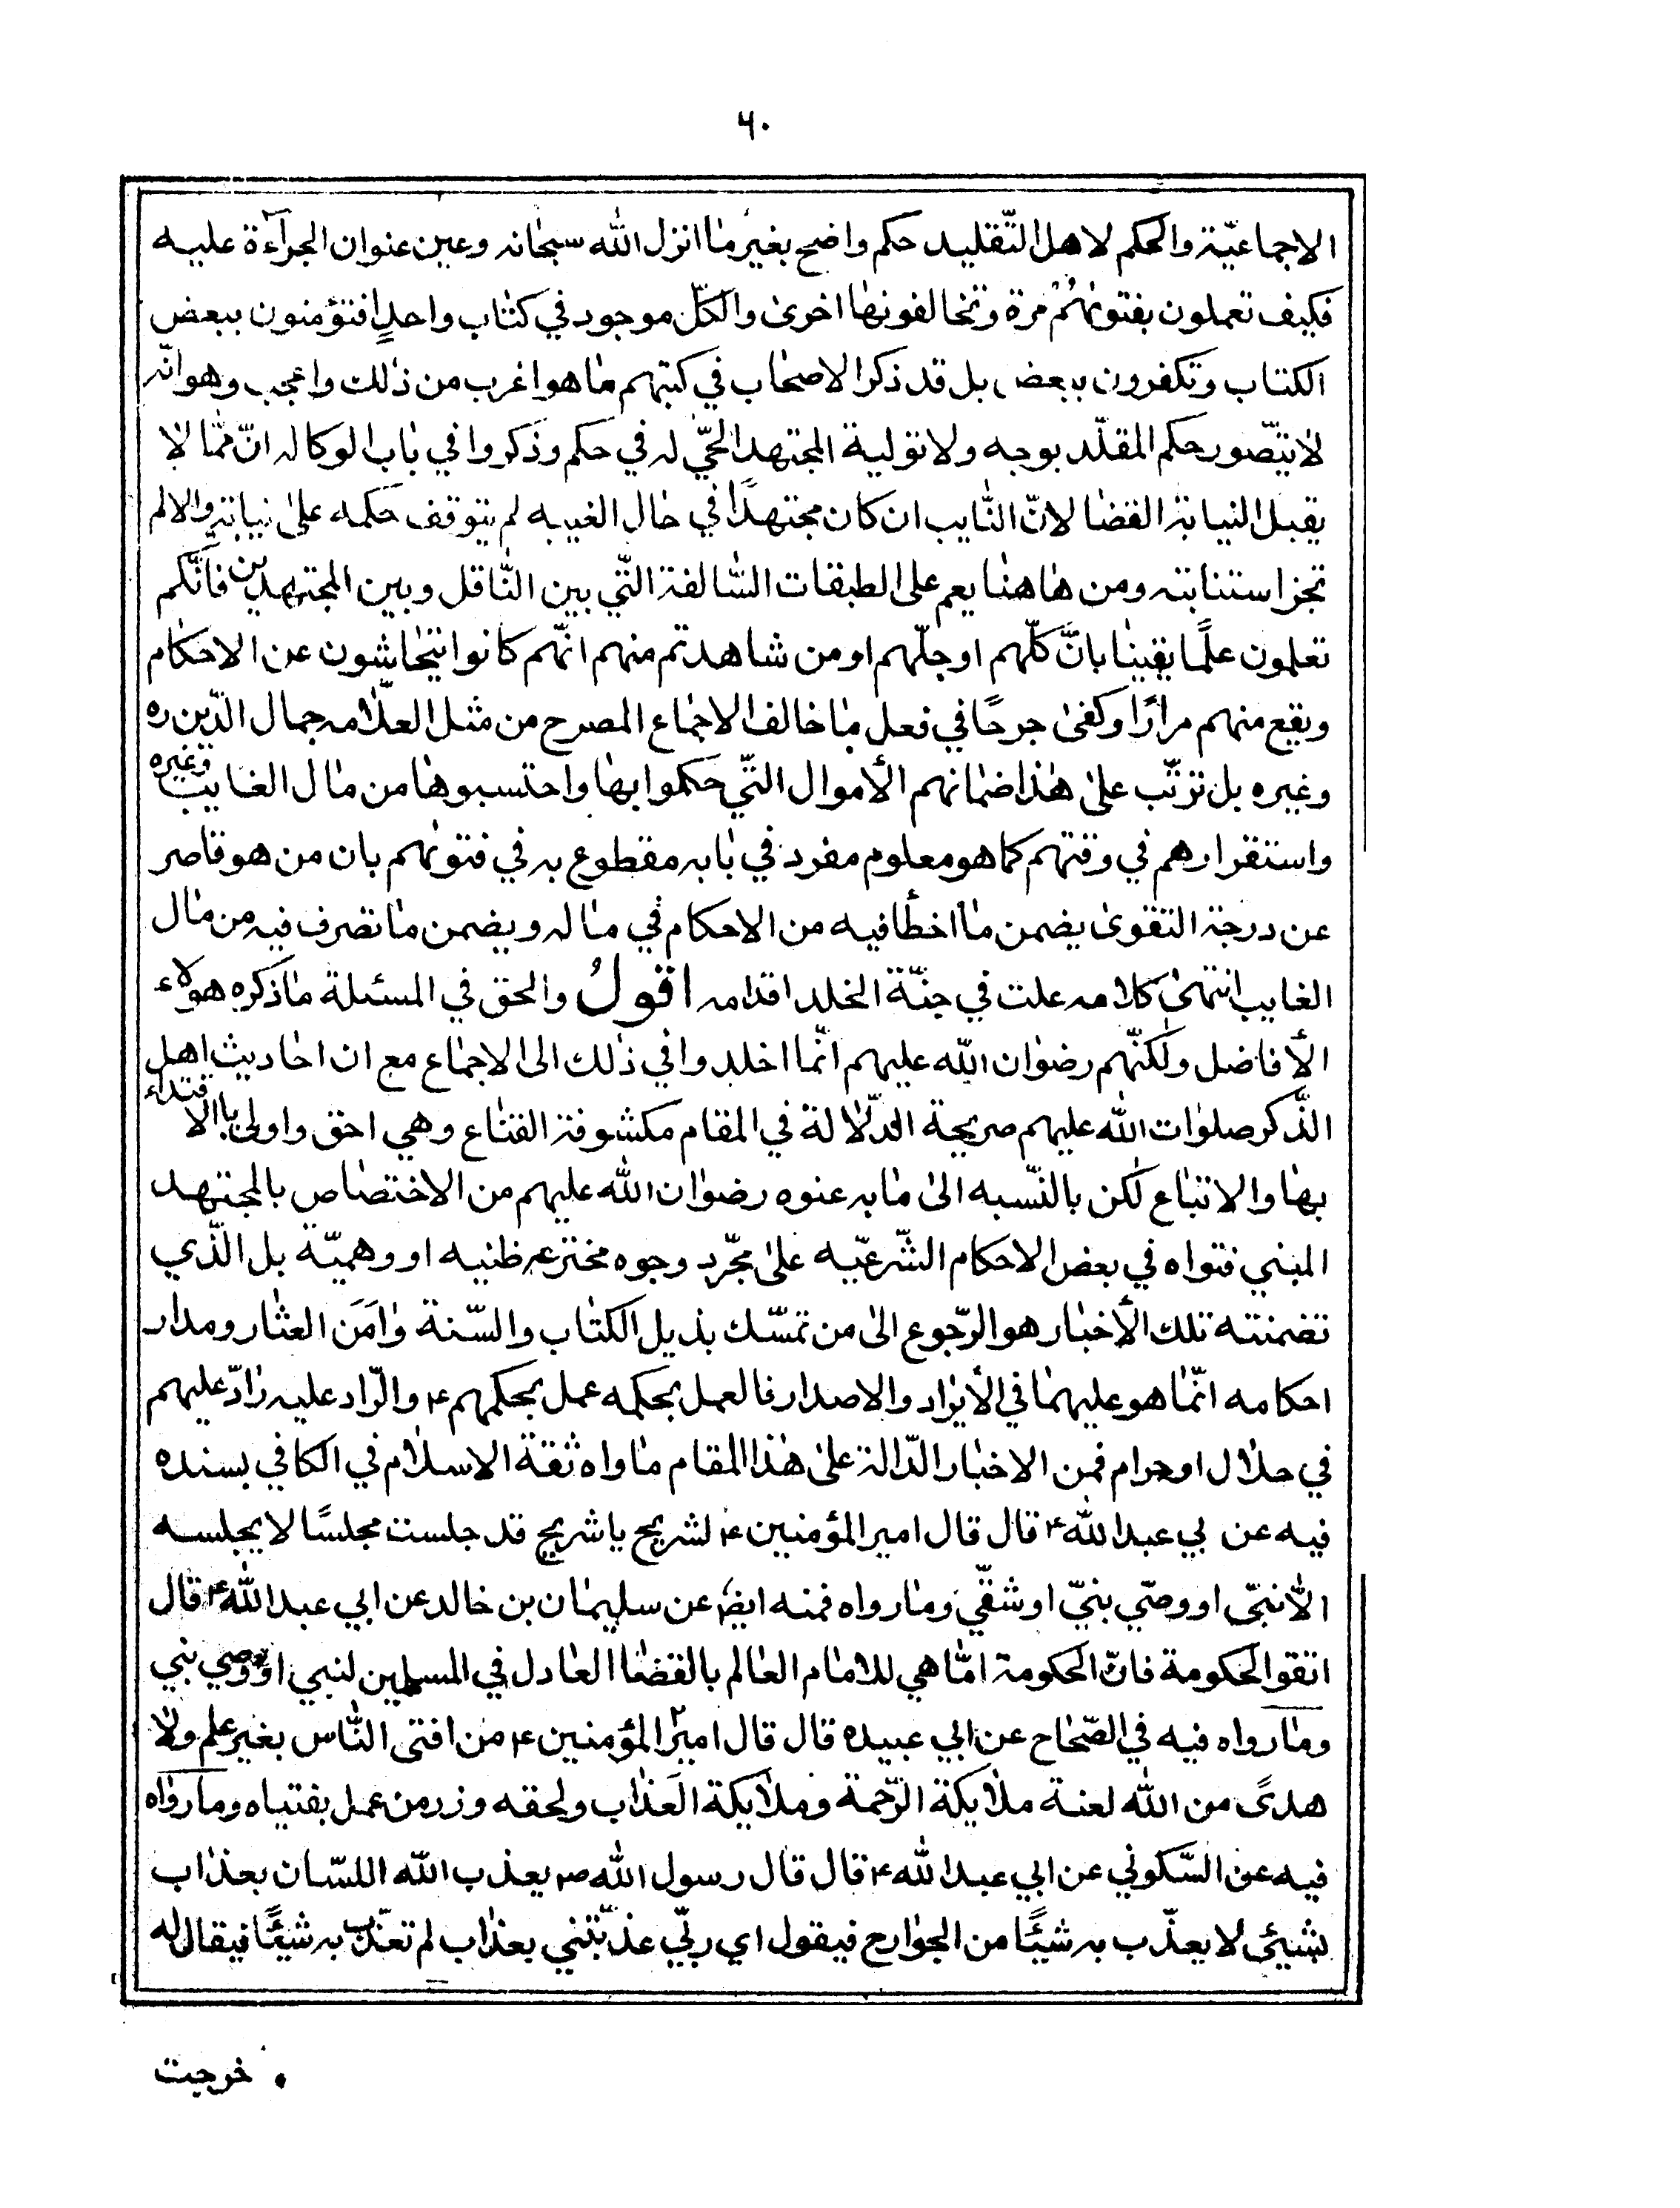 ٦٠
الاجماعيّة والحكم لاهل التّقليد حكم واضح بغير ما انزل الله سبحانه وعين عنوان الجرآءة عليه
فكيف تعملون بفتويهم مرة وتخالفونها اخرى والكلّ موجود في كتاب واحدٍ افتؤمنون ببعض
الكتاب وتكفرون ببعض بل قد ذكر الاصحاب في كتبهم ما هو اغرب من ذلك واعجب وهو انّه
لا يتصّور حكم المقلّد بوجه ولا تولية المجتهد الحيّ له في حكم وذكروا في باب الوكاله انّ ممّا لا
يقبل النيابة القضا لانّ النّايب ان كان مجتهدًا في حال الغيبه لم يتوقف حكمه على نيابته والا لم
تجز استنابته ومن هاهنا يعم على الطبقات السّالفة التّي بين النّاقل وبين المجتهدين فانّكم
تعلمون علمًا يقينا بانَّ كلّهم او جلّهم او من شاهدتم منهم انّهم كانوا يتحاشون عن الاحكام
ويقع منهم مرارًا وكفى جرحًا في فعل ما خالف الاجماع المصرح من مثل العلّامه جمال الدّين ره
وغيره بل ترتّب على هذا ضمانهم الأموال التّي حكموا بها واحتسبوها من مال الغايب وغيره
واستقرارهم في وقتهم كما هو معلوم مفرد في بابه مقطوع به في فتويهم بان من هو قاصر
عن درجة التقوى يضمن ما اخطأ فيه من الاحكام في ماله ويضمن ما تصرف فيه من مال
الغايب انتهى كلامه علت في جنّة الخلد اقدامه اقولُ والحق في المسئلة ما ذكره هولاء
الأفاضل ولكنّهم رضوان الله عليهم انّما اخلدوا في ذلك الى الاجماع مع ان احاديث اهل
الذّكر صلوات الله عليهم صريحة الدّلالة في المقام مكشوفة القناع وهي احق واولى بالاقتداء
بها والاتباع لكن بالنّسبه الى ما به عنوه رضوان الله عليهم من الاختصاص بالمجتهد
المبني فتواه في بعض الاحكام الشّرعيّه على مجّرد وجوه مخترعه ظنيه او وهميّة بل الّذي
تضمنته تلك الأخبار هو الرّجوع الى من تمسّك بذيل الكتاب والسّنة وَامَنَ العثار ومدار
احكامه انّما هو عليهما في الأيراد والاصدار فالعمل بحكمه عمل بحكمهم ع والرّاد عليه رادّ عليهم
في حلال او حرام فمن الاخبار الدّالة على هذا المقام ما واه ثقة الاسلام في الكافي بسنده
فيه عن بي عبد الله ع قال قال امير المؤمنين ع لشريح يا شريح قد جلست مجلسًا لا يجلسه
الّا نبّي او وصّي بنيّ او شقّي وما رواه فمنه ايضا عن سليمان بن خالد عن ابي عبد الله ع قال
اتقوا الحكومة فانّ الحكومة امّا هي للامام العالم بالقضا العادل في المسلمين لنبي او وصي نبي
وما رواه فيه في الصّحاح عن ابي عبيده قال قال امير المؤمنين ع من افتى النّاس بغير علم ولا
هدىً من الله لعنة ملايكة الرّحمة وملايكة العَذاب ولحقه وزر من عمل بفتياه وما رواه
فيه عن السّكوني عن ابي عبد الله ع قال قال رسول الله ص يعذب الله اللسّان بعذاب
بشيئى لا يعذّب به شيئًا من الجوارح فيقول اي ربّي عذّبتني بعذاب لم تعذّب به شيئًا فيقال له
خرجت